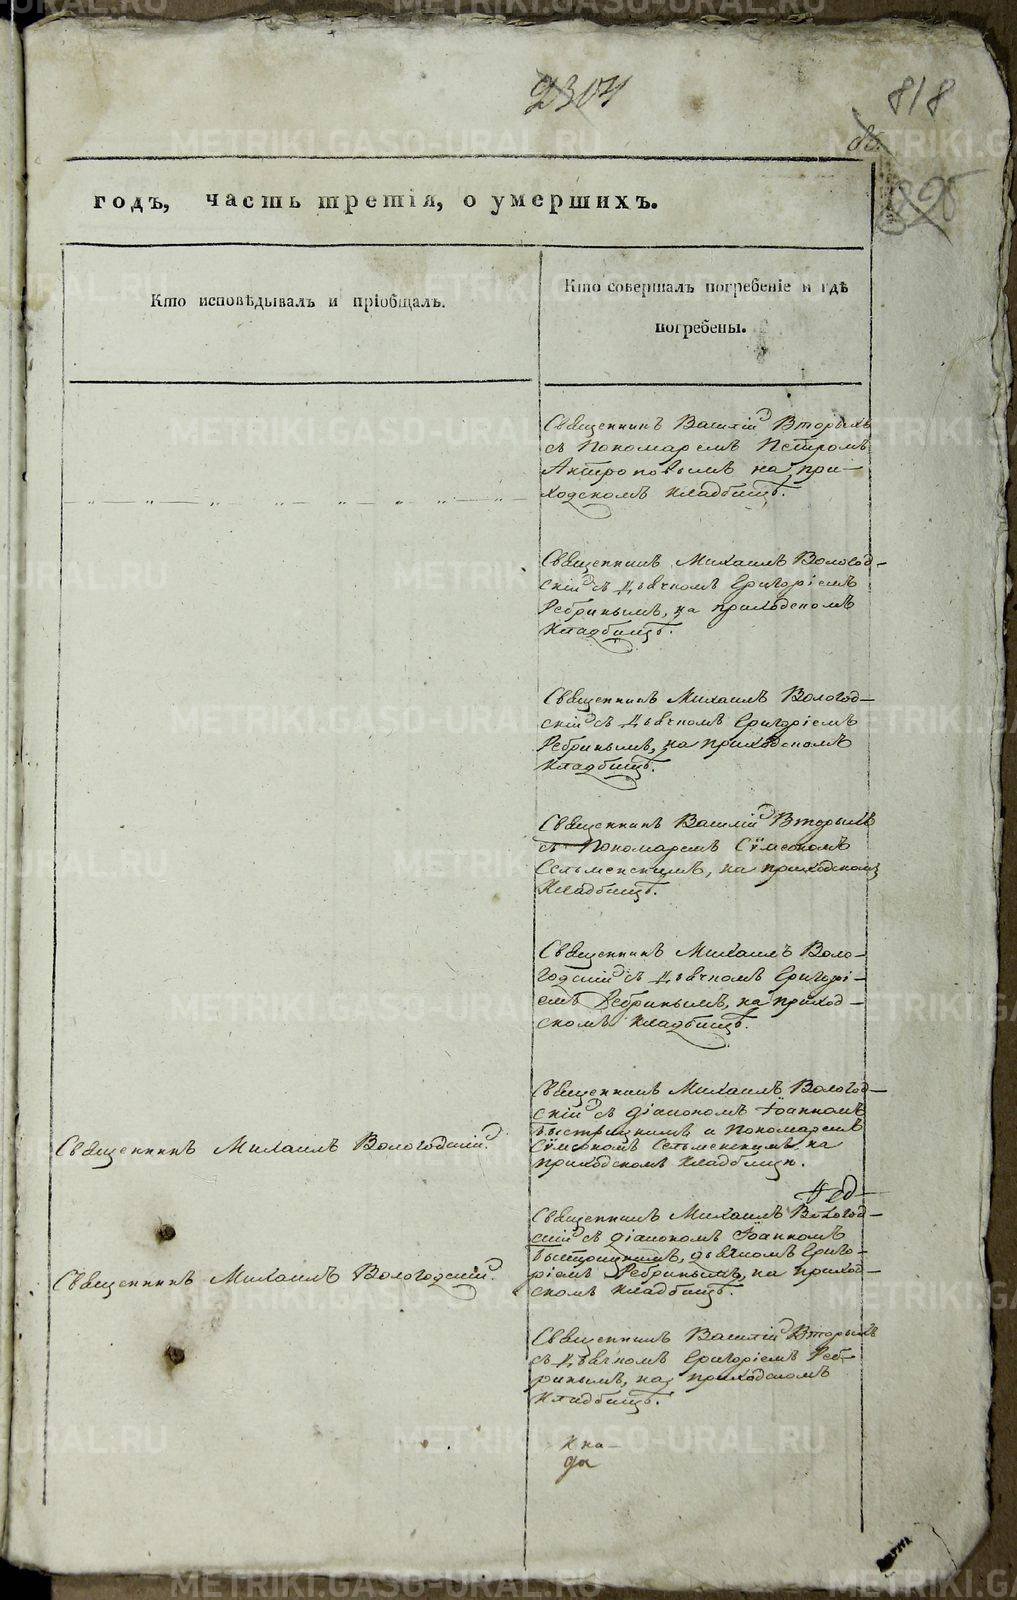 2304
818
годъ, часть третія, о умершихъ.
Кто исповѣдывалъ и пріобщалъ.
Кто совершалъ погребеніе и гдѣ
погребены.
Священникъ Василій Вторыхъ
съ Пономаремъ Петромъ
Антроповымъ на при-
ходскомъ кладбищѣ.
Священникъ Михаилъ Вологод-
скій съ дьячкомъ Григоріемъ
Ребринымъ, на приходскомъ
кладбищѣ.
Священникъ Михаилъ Вологод-
скій съ дьячкомъ Григоріемъ
Ребринымъ, на приходскомъ
кладбищѣ.
Священникъ Василій Вторыхъ
съ Пономаремъ Сѵмеономъ
Сельменскимъ, на приходскомъ
кладбищѣ.
Священникъ Михаилъ Воло-
годскій съ дьячкомъ Григорі-
емъ Ребринымъ, на приход-
скомъ кладбищѣ.
Священникъ Михаилъ Вологодскій.
Священникъ Михаилъ Вологод-
скій съ діакономъ Іоанномъ
Быстрицкимъ и Пономаремъ
Сѵмеономъ Сельменскимъ на
приходскомъ кладбищи.
Священникъ Михаилъ Вологодскій.
Священникъ Михаилъ Вологод-
скій съ діакономъ Іоанномъ
Быстрицкимъ, дьячкомъ Григо-
ріемъ Ребринымъ, на приход-
скомъ кладбищѣ.
Священникъ Василій Вторыхъ
съ дьячкомъ Григоріемъ Реб-
ринымъ, на приходскомъ
кладбищѣ.
METRIKI.GASO-URAL.RU